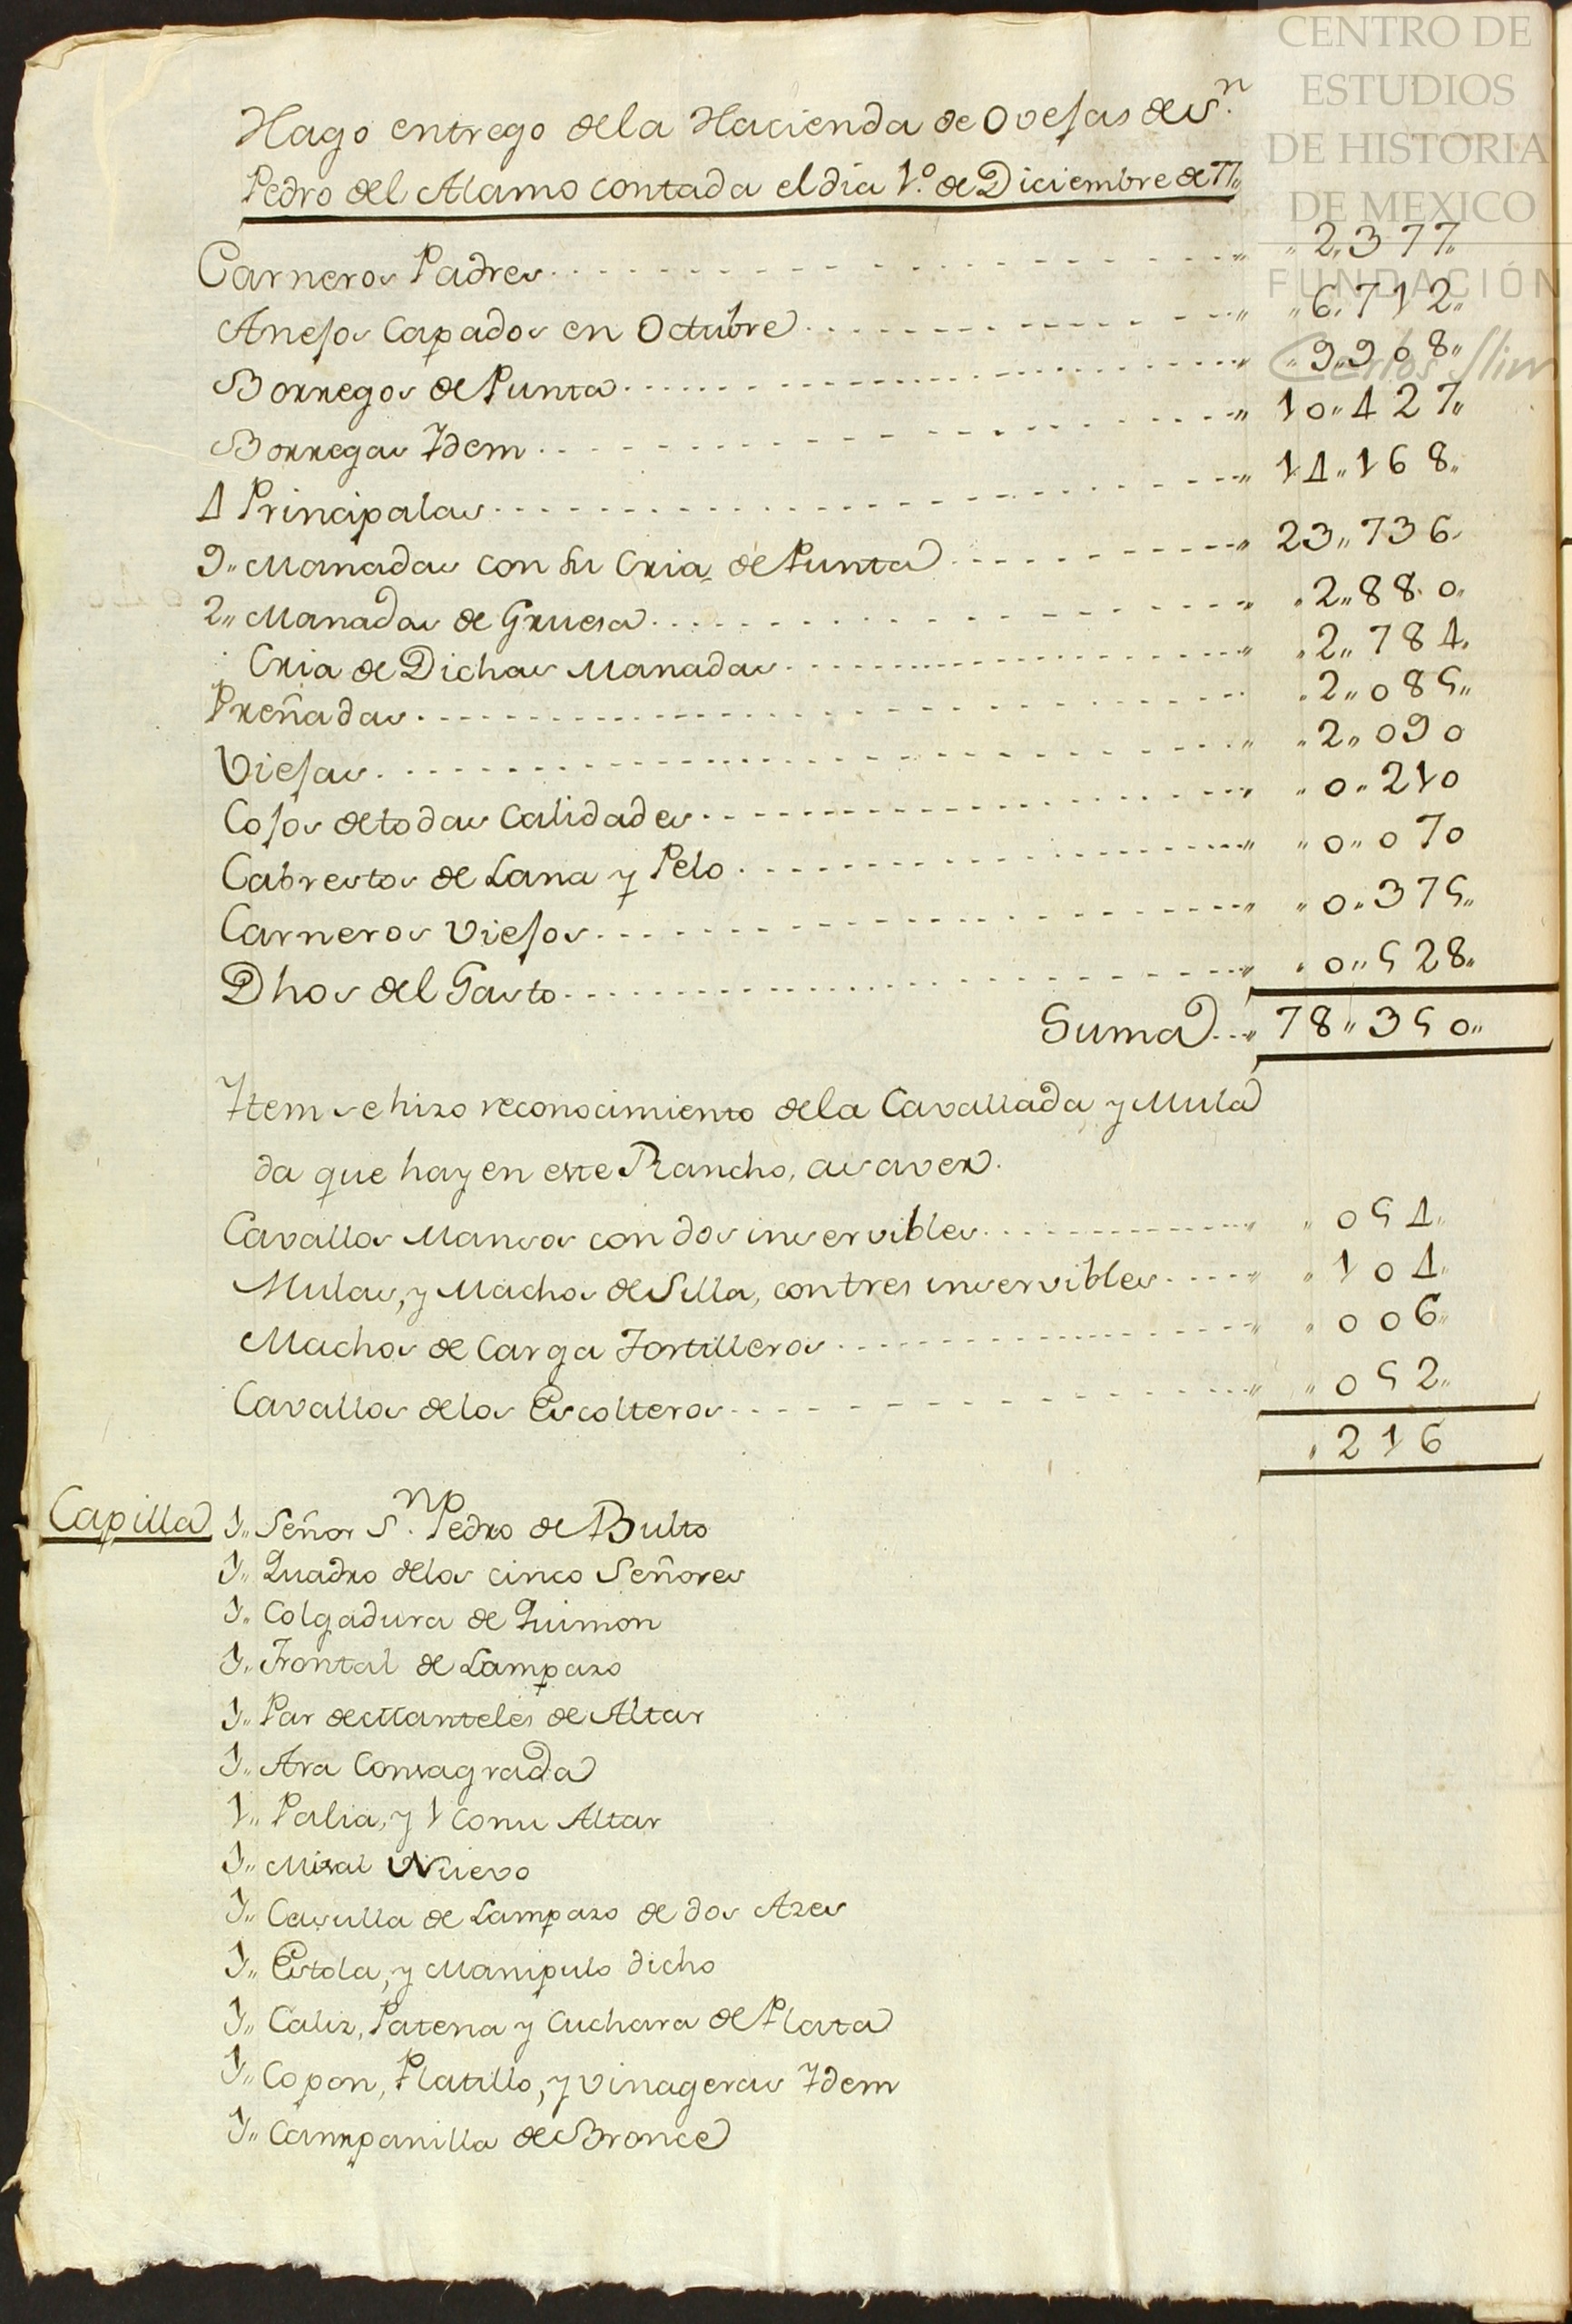 CENTRO DE
ESTUDIOS
DE HISTORIA
DE MEXICO
FUNDACIÓN
Carlos Slim
Hago entrego dela Hacienda de Ovejas de S.n
Pedro del Alamo contada el dia 1.º de Diciembre de 77,,
Carneros Padres ,, 2,,377,,
Anejos Capados en Octubre ,, 6,,712,,
Borregos de Punta ,, 9,,908,,
Borregas Ydem ,, 10,,427,,
4 Principalas ,, 14,,168,,
9,, Manadas con su Cria de Punta ,, 23,,736,,
2,, Manadas de Gruesa ,, 2,,880,,
Cria de Dichas Manadas ,, 2,,784,,
Preñadas ,, 2,,085,,
Viejas ,, 2,,090
Cojos de todas Calidades ,, 0,,210
Cabrestos de Lana y Pelo ,, 0,,070
Carneros Viejos ,, 0,,375,,
Dhos del Gasto ,, 0,,528,,
Suma ,, 78,,350,,
Ytem se hizo reconocimiento dela Cavallada y Mula
da que hay en este Rancho, asaver.
Cavallos Mansos con dos inservibles ,, 054,,
Mulas, y Machos de Silla, con tres inservibles ,, 104,,
Machos de Carga Tortilleros ,, 006,,
Cavallos delos Escolteros ,, 052,,
,, 216
Capilla 1,, Señor S.n P.º Pedro de Bulto
1,, Quadro delos cinco Señores
1,, Colgadura de Quimon
1,, Frontal de Lampazo
1,, Par de Manteles de Altar
1,, Ara Consagrada
1,, Palia, y 1 Conu Altar
1,, Misal Nuevo
1,, Casulla de Lampazo de dos Azes
1,, Estola, y Manipulo dicho
1,, Caliz, Patena y Cuchara de Plata
1,, Copon, Platillo, y Vinageras Ydem
1,, Campanilla de Bronce